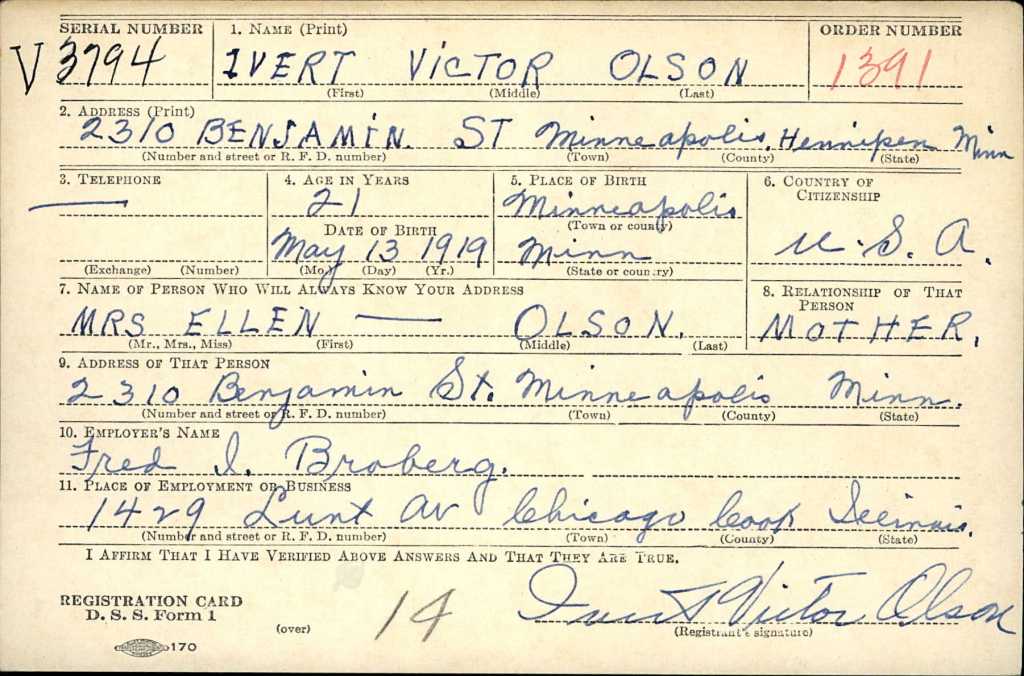 SERIAL NUMBER 1. NAME (Print) ORDER NUMBER
V 3794 IVERT VICTOR OLSON 1391
(First) (Middle) (Last)
2. ADDRESS (Print)
2310 BENJAMIN. ST Minneapolis, Hennipen Minn
(Number and street or R. F. D. number) (Town) (County) (State)
3. TELEPHONE 4. AGE IN YEARS 5. PLACE OF BIRTH 6. COUNTRY OF CITIZENSHIP
— 21 Minneapolis
DATE OF BIRTH (Town or county)
May 13 1919 Minn U. S. A.
(Exchange) (Number) (Mo.) (Day) (Yr.) (State or country)
7. NAME OF PERSON WHO WILL ALWAYS KNOW YOUR ADDRESS 8. RELATIONSHIP OF THAT PERSON
MRS ELLEN — OLSON. MOTHER.
(Mr., Mrs., Miss) (First) (Middle) (Last)
9. ADDRESS OF THAT PERSON
2310 Benjamin St. Minneapolis Minn.
(Number and street or R. F. D. number) (Town) (County) (State)
10. EMPLOYER'S NAME
Fred I. Broberg.
11. PLACE OF EMPLOYMENT OR BUSINESS
1429 Lunt Av Chicago Cook Illinois.
(Number and street or R. F. D. number) (Town) (County) (State)
I AFFIRM THAT I HAVE VERIFIED ABOVE ANSWERS AND THAT THEY ARE TRUE.
REGISTRATION CARD
D. S. S. Form 1
(over) 14 Ivert Victor Olson
(Registrant's signature)
170